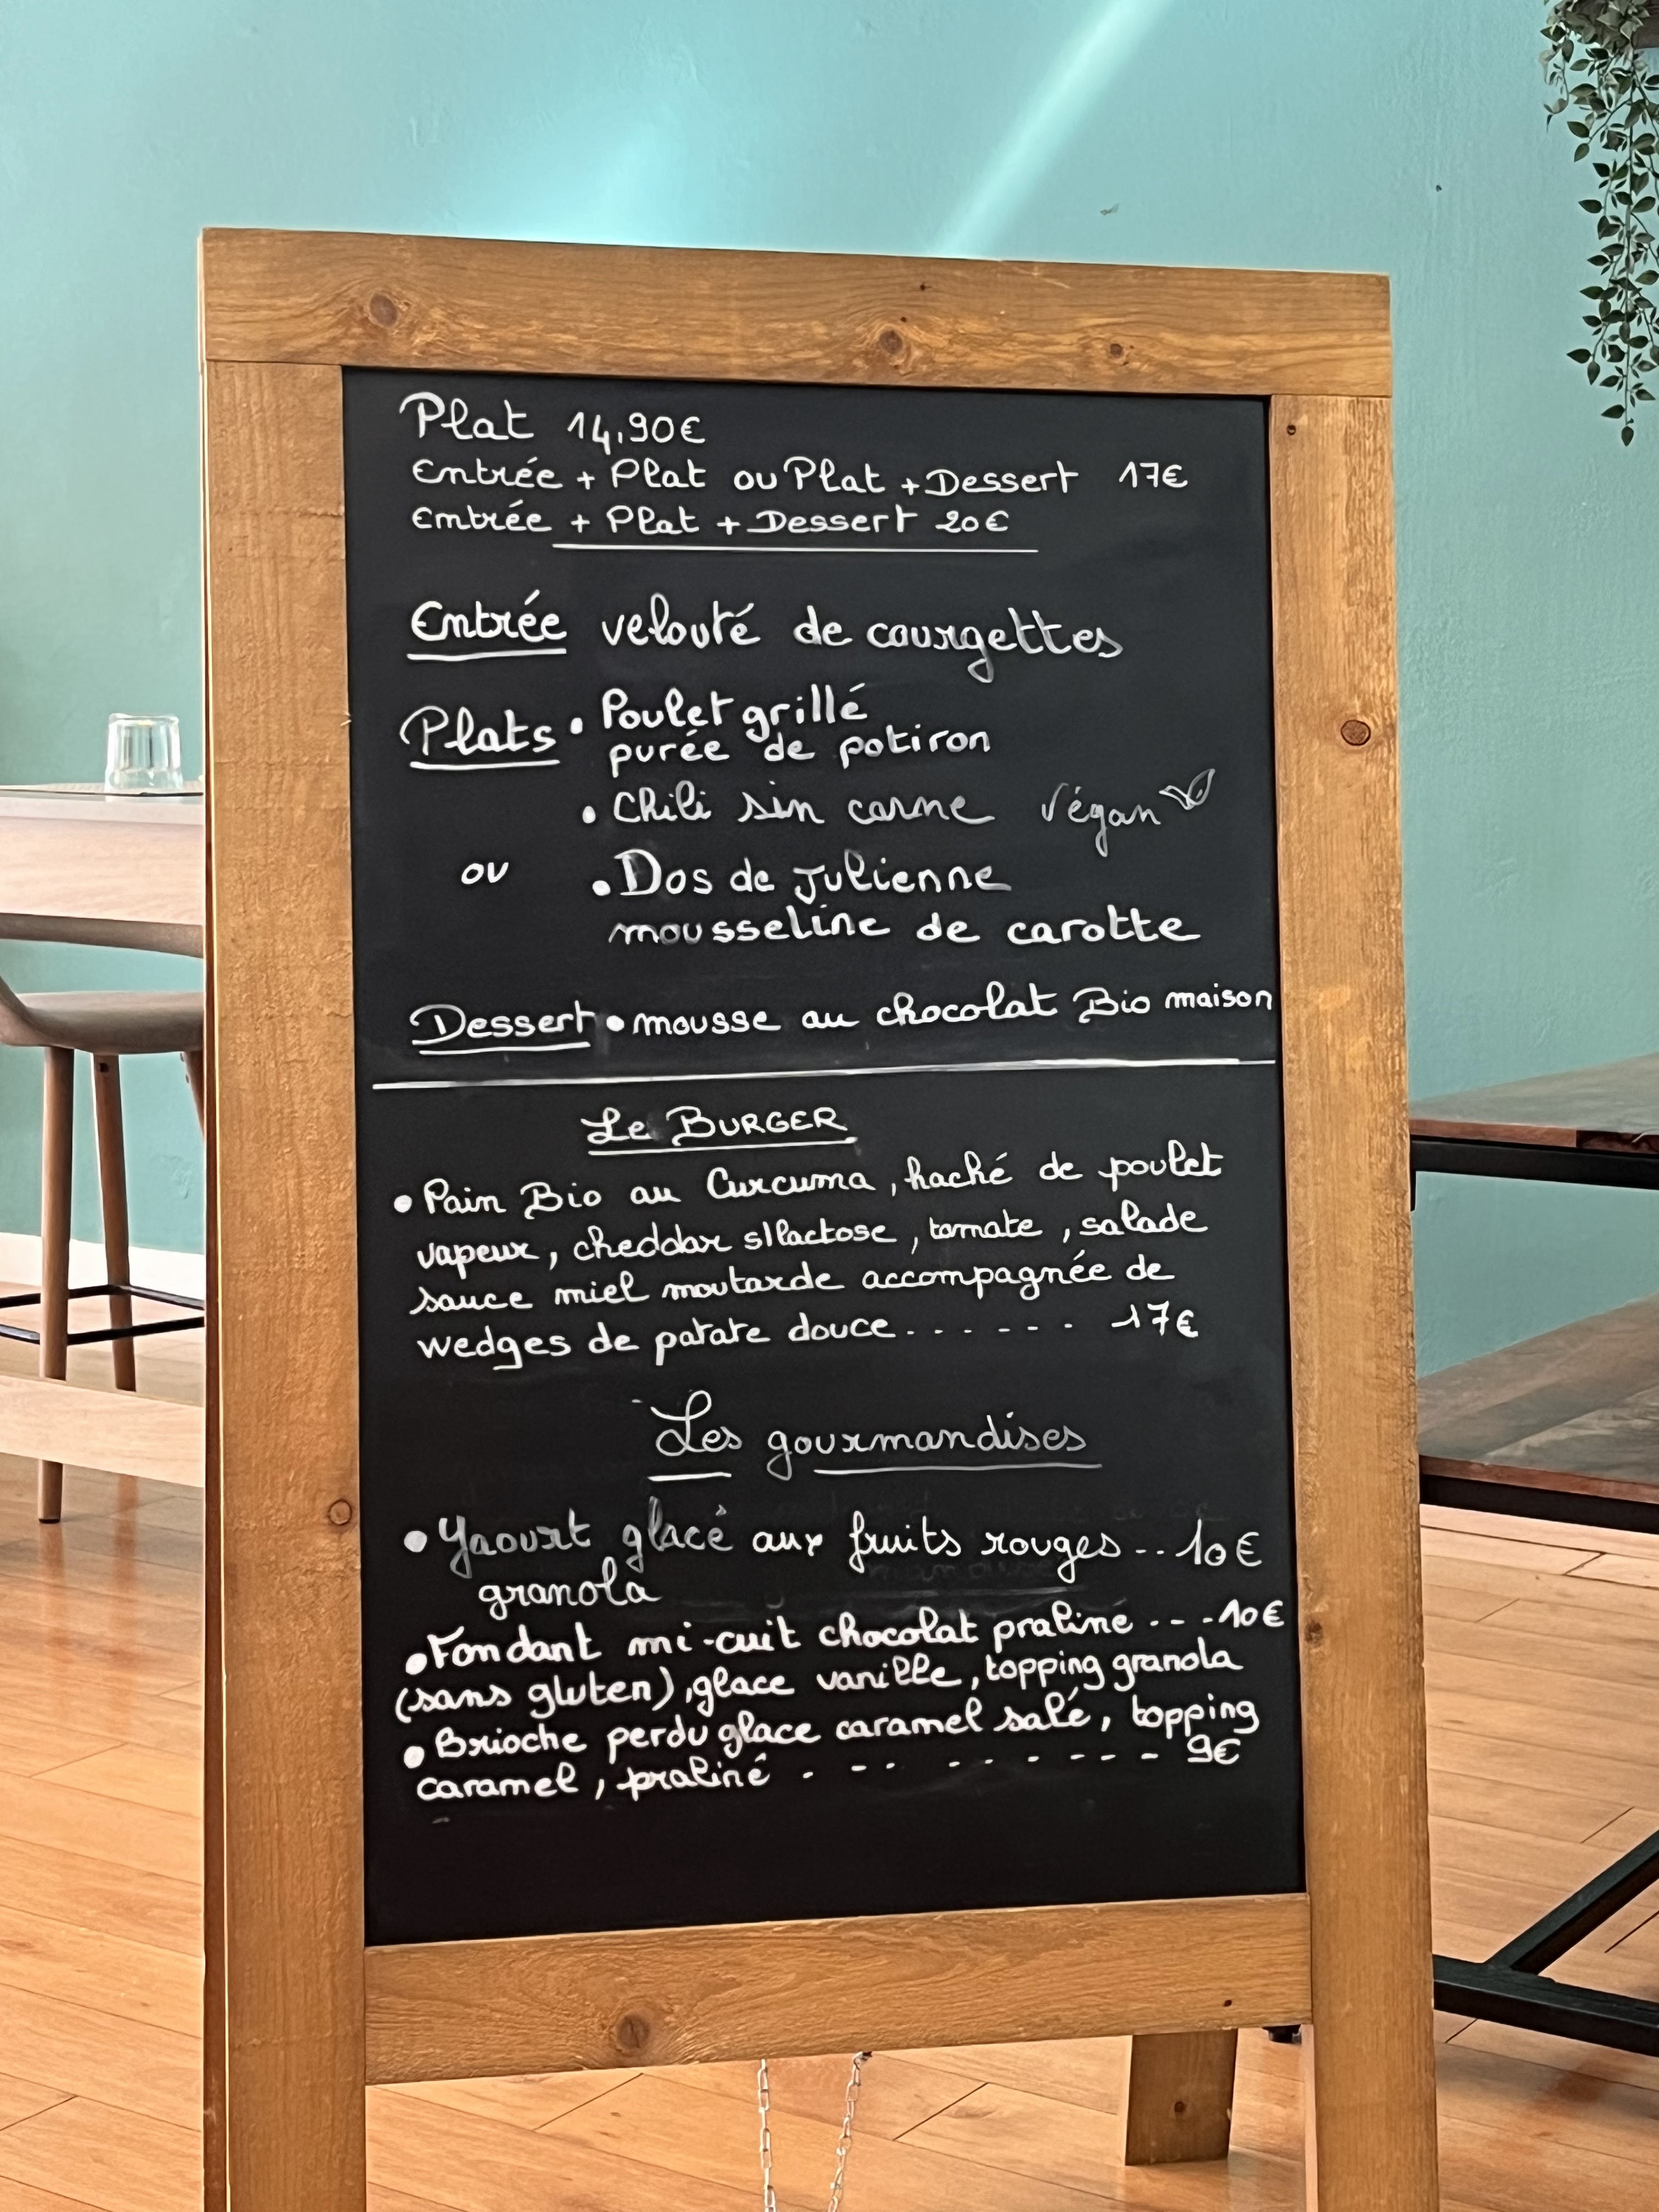 Plat 14,90€
Entrée + Plat ou Plat + Dessert 17€
Entrée + Plat + Dessert 20€
Entrée velouté de courgettes
Plats • Poulet grillé
purée de potiron
• Chili sin carne végan
ou • Dos de Julienne
mousseline de carotte
Dessert • mousse au chocolat Bio maison
Le BURGER
• Pain Bio au Curcuma, haché de poulet
vapeur, cheddar s/lactose, tomate, salade
sauce miel moutarde accompagnée de
wedges de patate douce . . . . . . 17€
Les gourmandises
• Yaourt glacé aux fruits rouges . . 10€
granola
• Fondant mi-cuit chocolat praliné - - - 10€
(sans gluten), glace vanille, topping granola
• Brioche perdu glace caramel salé, topping
caramel, praliné . - - - - - - - - 9€